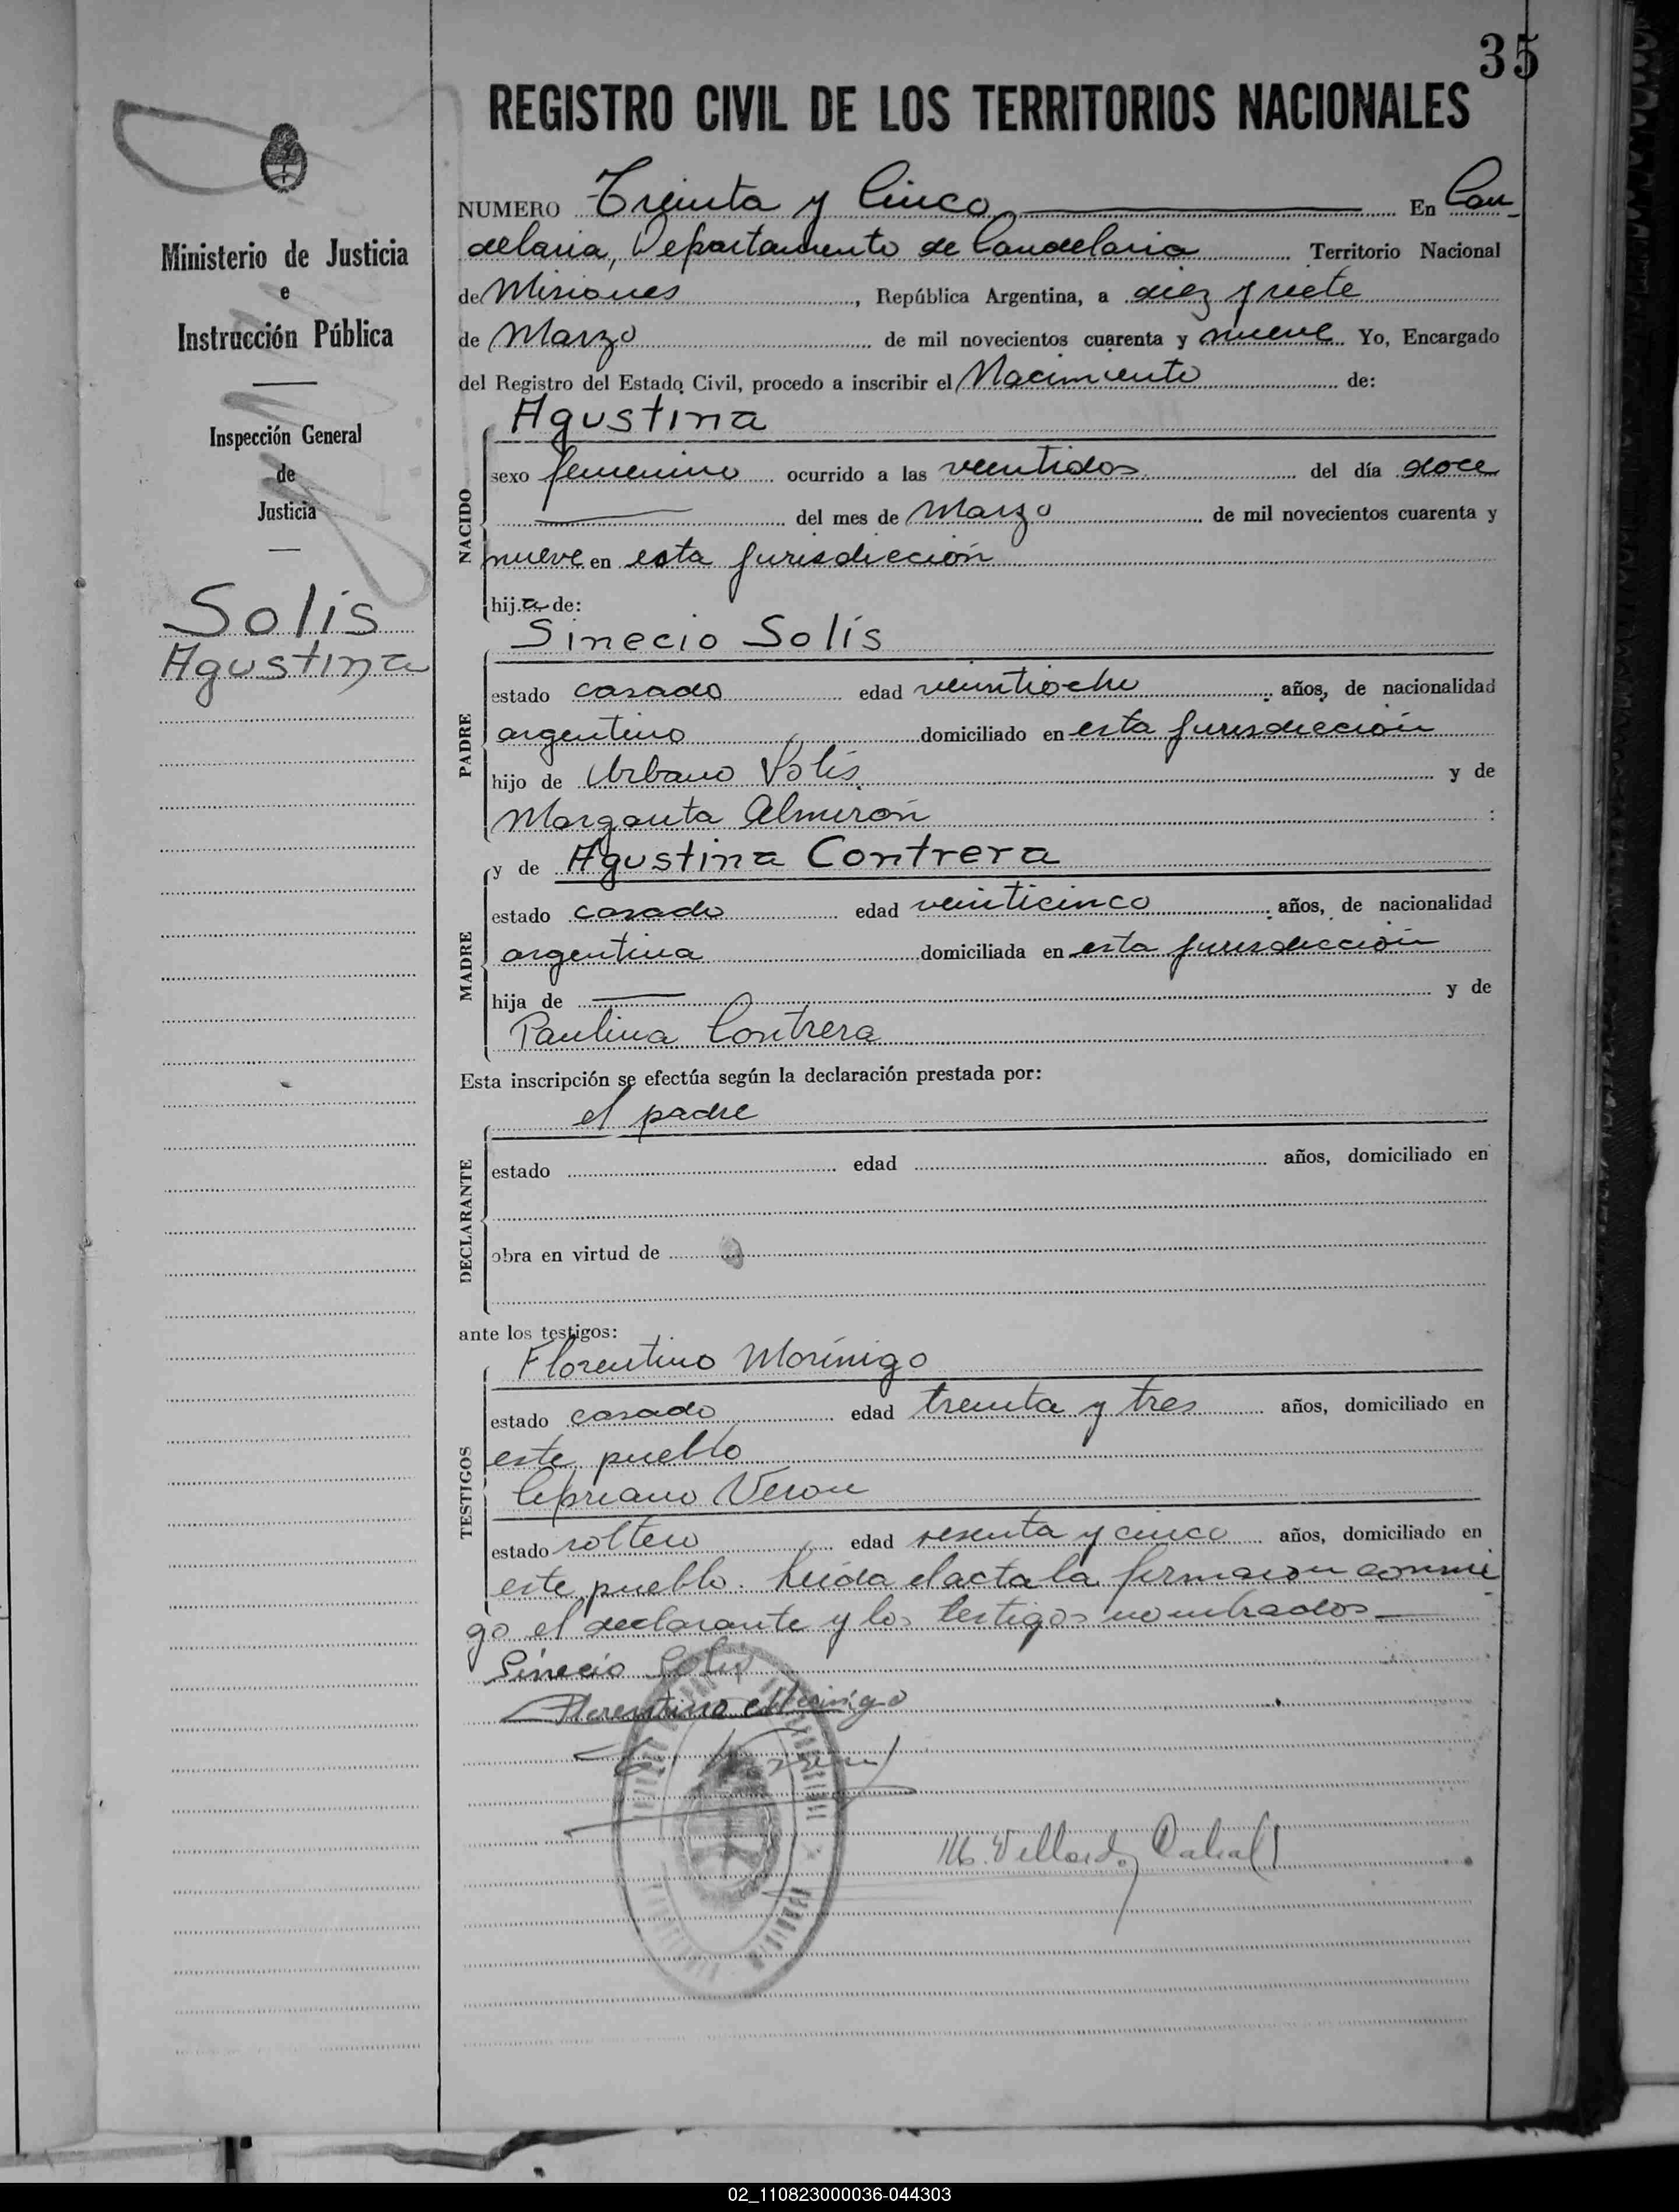 35
REGISTRO CIVIL DE LOS TERRITORIOS NACIONALES
NUMERO Treinta y Cinco En Can-
delaria, Departamento de Candelaria Territorio Nacional
de Misiones, República Argentina, a diez y siete
de Marzo de mil novecientos cuarenta y nueve Yo, Encargado
del Registro del Estado Civil, procedo a inscribir el Nacimiento de:
Ministerio de Justicia
e
Instrucción Pública
Inspección General
de
Justicia
Solis
Agustina
NACIDO
Agustina
sexo femenino ocurrido a las veintidos del día doce
del mes de Marzo de mil novecientos cuarenta y
nueve en esta jurisdicción
hija de:
PADRE
Sinecio Solís
estado casado edad veintiocho años, de nacionalidad
argentino domiciliado en esta jurisdicción
hijo de Urbano Solis y de
Margarita Almirón
MADRE
y de Agustina Contrera
estado casada edad veinticinco años, de nacionalidad
argentina domiciliada en esta jurisdicción
hija de y de
Paulina Contrera
Esta inscripción se efectúa según la declaración prestada por:
DECLARANTE
el padre
estado edad años, domiciliado en
obra en virtud de
ante los testigos:
TESTIGOS
Florentino Morinigo
estado casado edad treinta y tres años, domiciliado en
este pueblo
Cipriano Veron
estado soltero edad sesenta y cinco años, domiciliado en
este pueblo. Leída el acta la firmaron conmi
go el declarante y los testigos nombrados
Sinecio Solis
Florentino Morinigo
M. Cabral
02_110823000036-044303